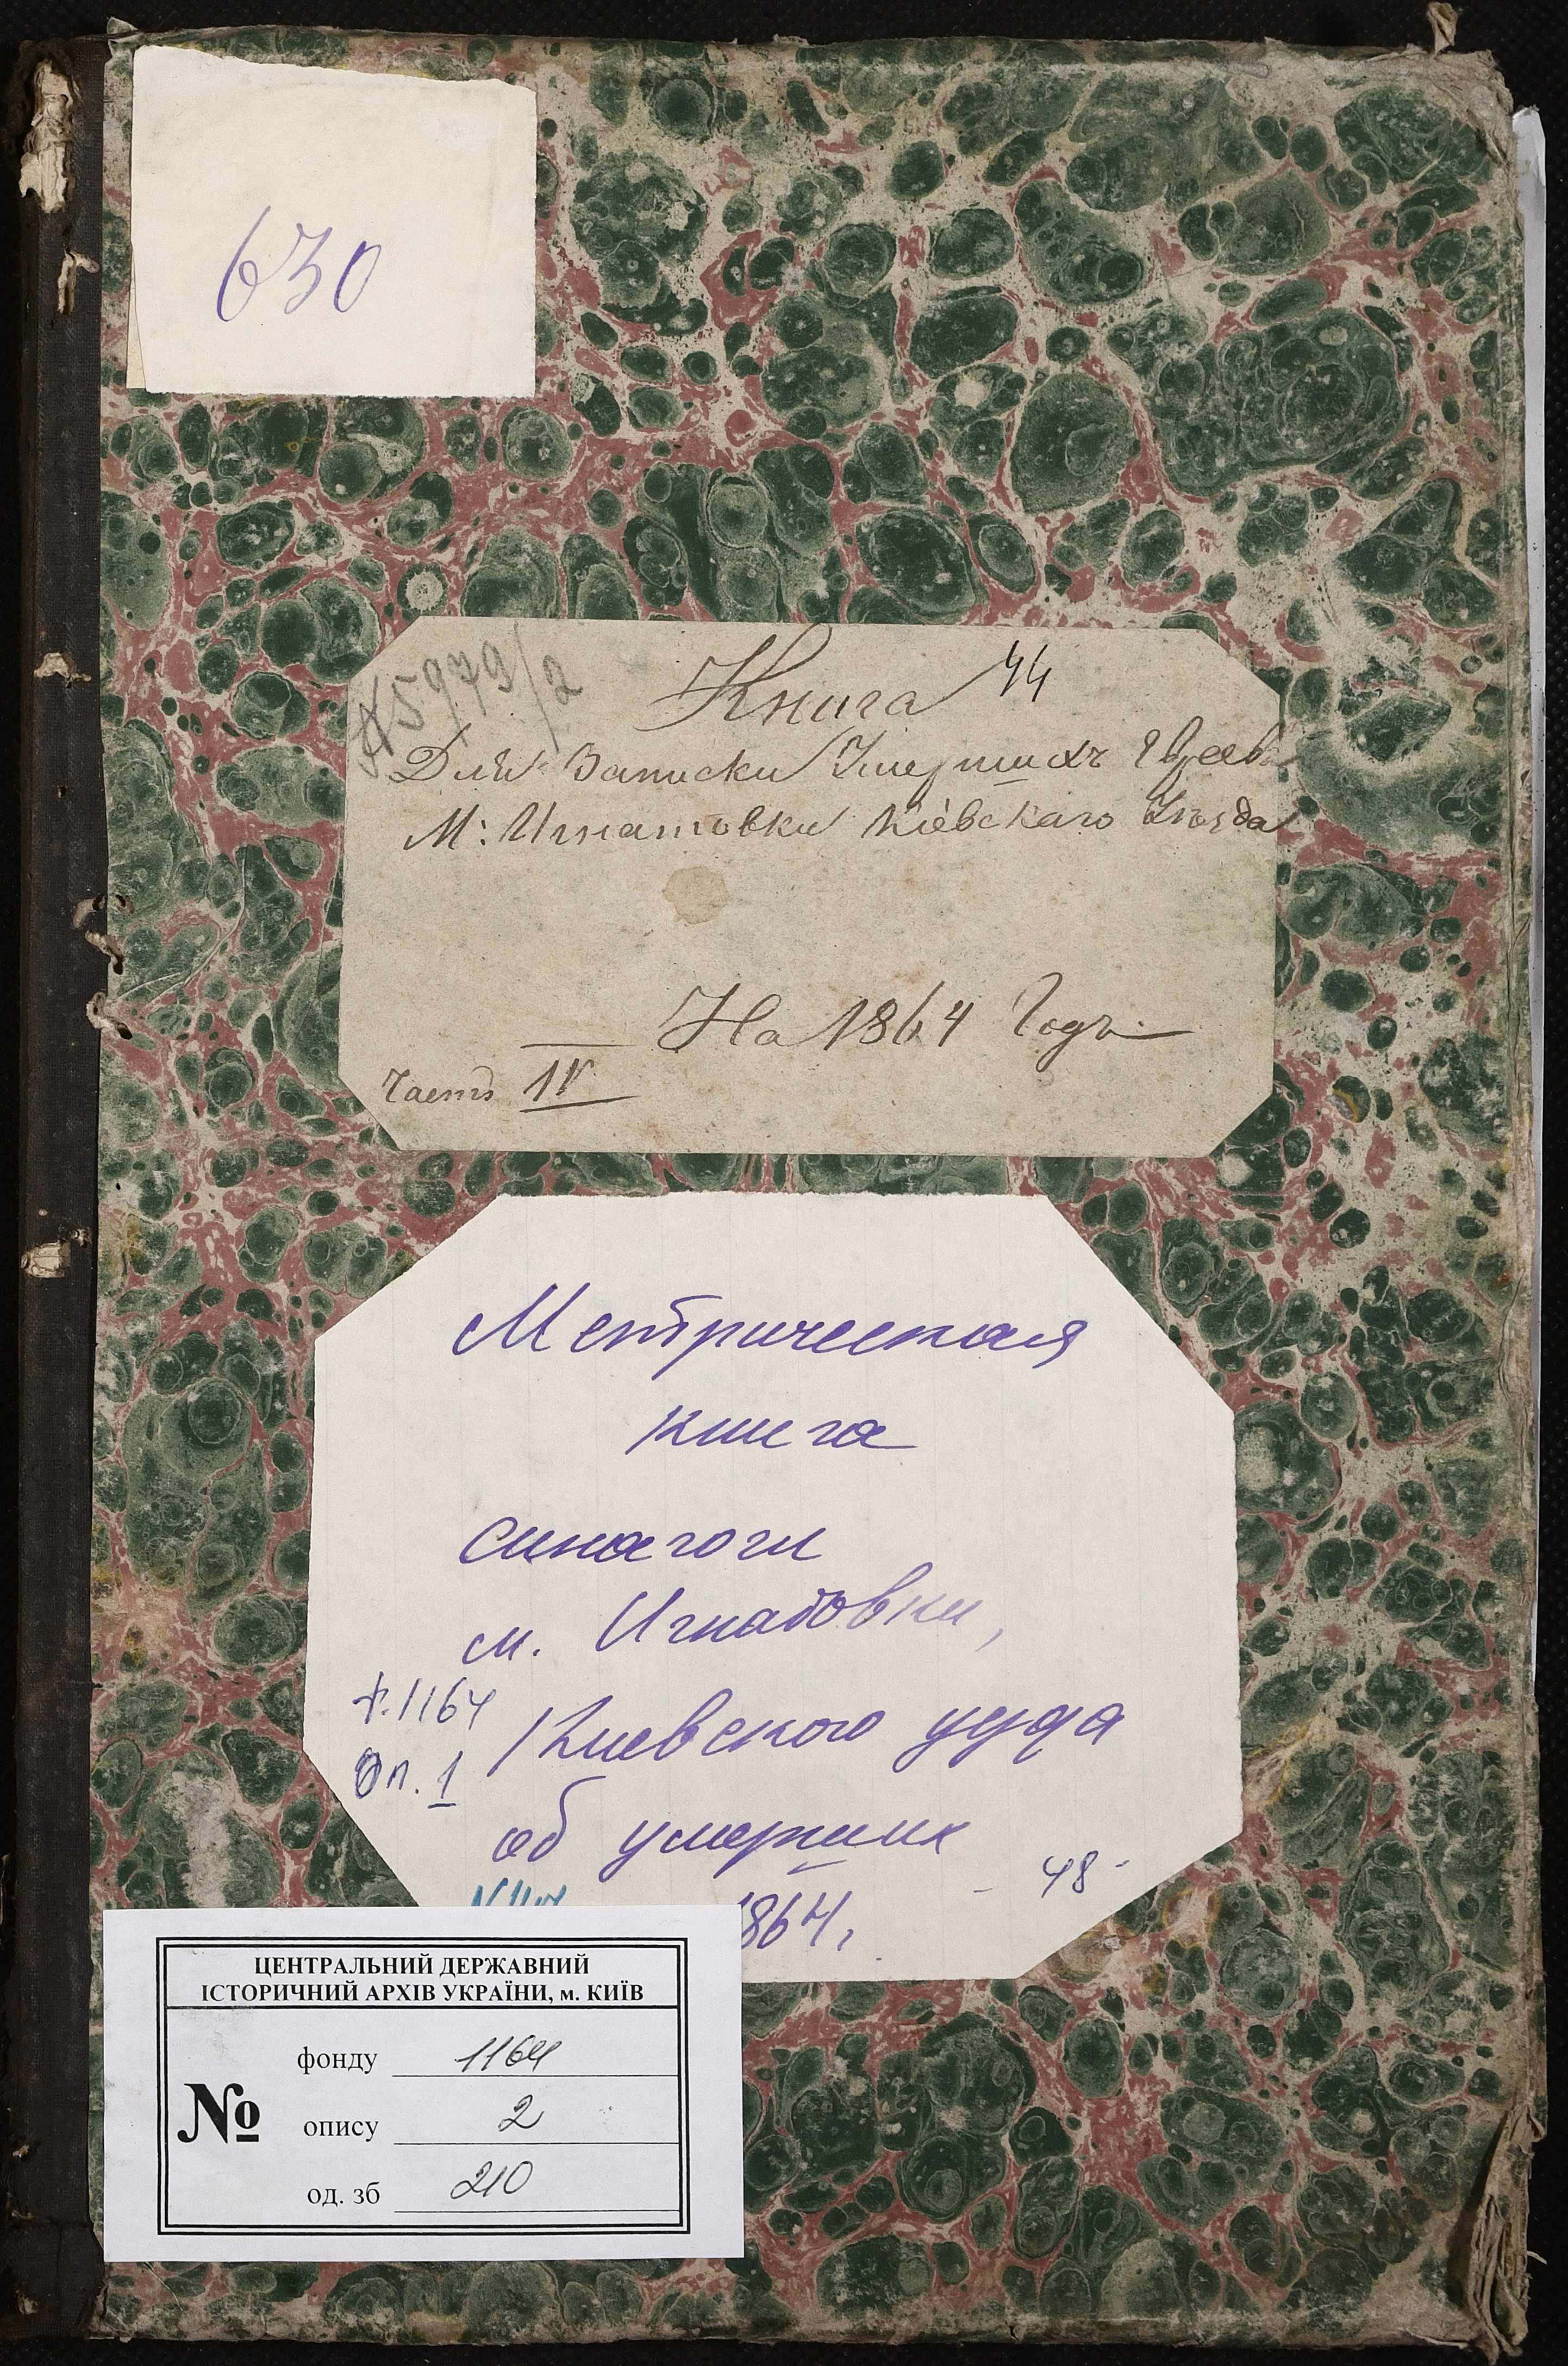 630
№5979/2
Книга 44
Для Записки Умершихъ Евреевъ
М: Игнатовки Кіевскаго Уѣзда
На 1864 Годъ
Часть IV
Метрическая
книга
синагоги
м. Игнатовки,
ф. 1164
Киевского уезда
оп. 1
об умерших
- 48 -
1864 г.
ЦЕНТРАЛЬНИЙ ДЕРЖАВНИЙ
ІСТОРИЧНИЙ АРХІВ УКРАЇНИ, м. КИЇВ
фонду 1164
№ опису 2
од. зб 210